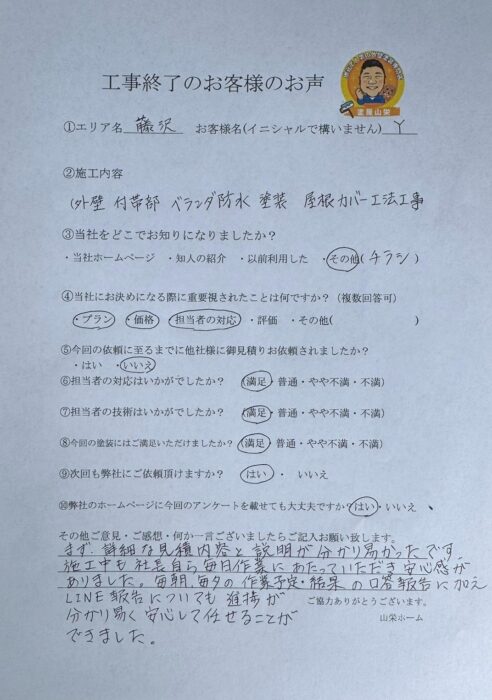 工事終了のお客様のお声
塗屋山栄
①エリア名 藤沢 お客様名(イニシャルで構いません) Y
②施工内容
(外壁 付帯部 ベランダ防水 塗装 屋根カバー工法工事
③当社をどこでお知りになりましたか?
・当社ホームページ ・知人の紹介 ・以前利用した ・その他(チラシ)
④当社にお決めになる際に重要視されたことは何ですか?(複数回答可)
・プラン ・価格 ・担当者の対応 ・評価 ・その他( )
⑤今回の依頼に至るまでに他社様に御見積りお依頼されましたか?
・はい ・いいえ
⑥担当者の対応はいかがでしたか? (満足・普通・やや不満・不満)
⑦担当者の技術はいかがでしたか? (満足・普通・やや不満・不満)
⑧今回の塗装にはご満足いただけましたか? (満足・普通・やや不満・不満)
⑨次回も弊社にご依頼頂けますか? はい ・ いいえ
⑩弊社のホームページに今回のアンケートを載せても大丈夫ですか?はい・いいえ
その他ご意見・ご感想・何か一言ございましたらご記入お願い致します。
まず、詳細な見積内容と説明が分かり易かったです。
施工中も社長自ら毎日作業にあたっていただき安心感が
ありました。毎朝、毎夕の作業予定・結果の口答報告に加え
LINE報告についても進捗が
ご協力ありがとうございます。
分かり易く安心して任せることが
山栄ホーム
できました。